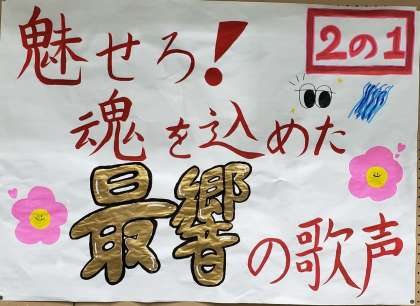 魅せろ!
2の1
魂を込めた
最響の歌声